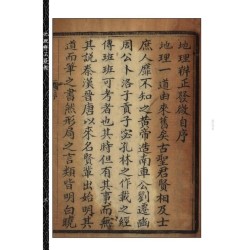 地理辨正發微自序
地理一道由來舊矣古聖君賢相及士
庶人靡不知之黃帝造南車公劉遷豳
周公卜洛子貢子宓孔林之作載之經
傳班班可考者也其時但有其事而無
其說秦漢晉唐以來名賢輩出始明其
道而筆之書然形局之言類皆明白曉